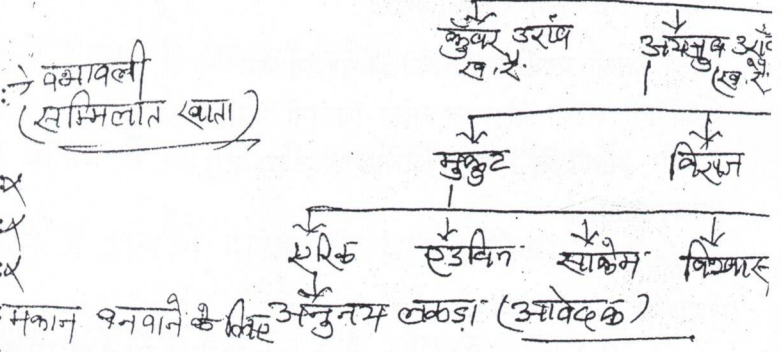 कुँवर उरांव अयनुव उरांव
ख. रै. (ख. रै.
:→ वंशावली
(सम्मिलात खाता)
मुकुट विराज
एरिक एडविन साकेम विश्वास
मकान बनवाने के लिए अनुनय लकडा (आवेदक)